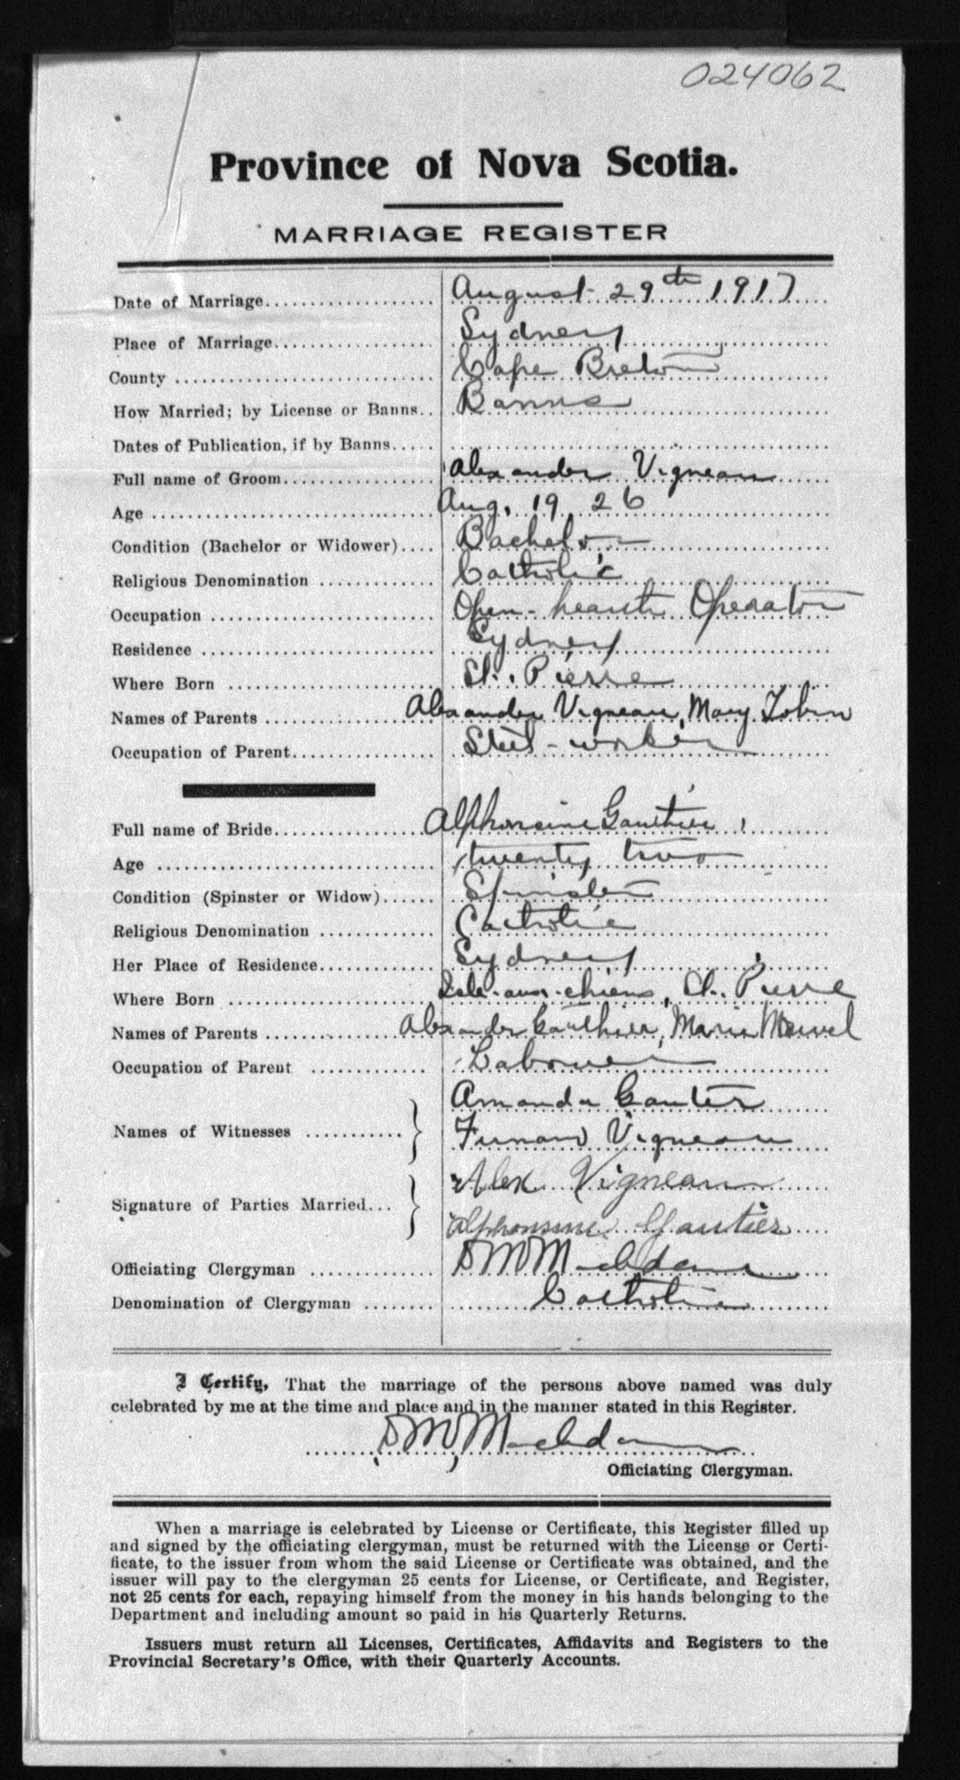 024062
Province of Nova Scotia.
MARRIAGE REGISTER
Date of Marriage.................... August 29th 1917
Place of Marriage................... Sydney
County .............................. Cape Breton
How Married; by License or Banns.. Banns
Dates of Publication, if by Banns.....
Full name of Groom.................. Alexander Vigneau
Age ................................. Aug. 19, 26
Condition (Bachelor or Widower).... Bachelor
Religious Denomination ............. Catholic
Occupation .......................... Open-hearth Operator
Residence ........................... Sydney
Where Born ......................... St. Pierre
Names of Parents ................... Alexander Vigneau, Mary Tobin
Occupation of Parent................ Steel-worker
Full name of Bride.................. Alphonsine Gauthier
Age ................................. twenty two
Condition (Spinster or Widow)...... Spinster
Religious Denomination ............. Catholic
Her Place of Residence.............. Sydney
Where Born ......................... Isle-aux-chiens, St. Pierre
Names of Parents ................... Alexander Gauthier, Marie
Occupation of Parent ............. Labourer
Amanda Gautier
Names of Witnesses ............
Vigneau
Alex Vigneau
Signature of Parties Married...
Alphonsine Gautier
Officiating Clergyman ............. D M MacAdam
Denomination of Clergyman ........ Catholic
I Certify, That the marriage of the persons above named was duly
celebrated by me at the time and place and in the manner stated in this Register.
D M MacAdam
Officiating Clergyman.
When a marriage is celebrated by License or Certificate, this Register filled up
and signed by the officiating clergyman, must be returned with the License or Certi-
ficate, to the issuer from whom the said License or Certificate was obtained, and the
issuer will pay to the clergyman 25 cents for License, or Certificate, and Register,
not 25 cents for each, repaying himself from the money in his hands belonging to the
Department and including amount so paid in his Quarterly Returns.
Issuers must return all Licenses, Certificates, Affidavits and Registers to the
Provincial Secretary's Office, with their Quarterly Accounts.